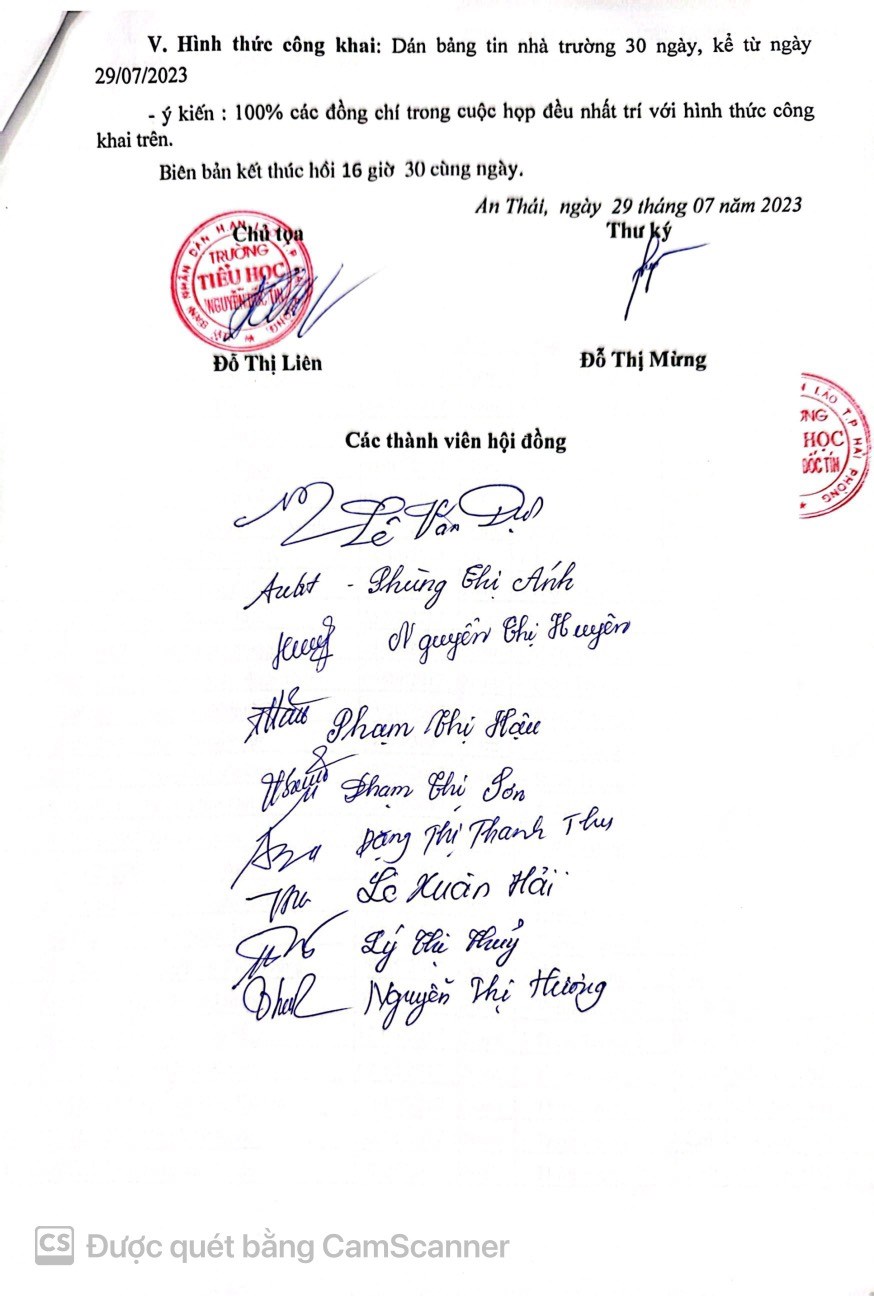 V. Hình thức công khai: Dán bảng tin nhà trường 30 ngày, kể từ ngày
29/07/2023
- ý kiến : 100% các đồng chí trong cuộc họp đều nhất trí với hình thức công
khai trên.
Biên bản kết thúc hồi 16 giờ 30 cùng ngày.
An Thái, ngày 29 tháng 07 năm 2023
Chủ tọa
Thư ký
TRƯỜNG
TIỂU HỌC
Đỗ Thị Liên
Đỗ Thị Mừng
LÃO T.P HẢI PHÒNG
HỌC
ĐỐC TÍN
Các thành viên hội đồng
Lê Văn
Phùng Thị Ánh
Nguyễn Thị Huyên
Phạm Thị Hậu
Phạm Thị Sơn
Đặng Thị Thanh Thu
Lê Xuân Hải
Lý Thị Thuỷ
Nguyễn Thị Hương
CS Được quét bằng CamScanner